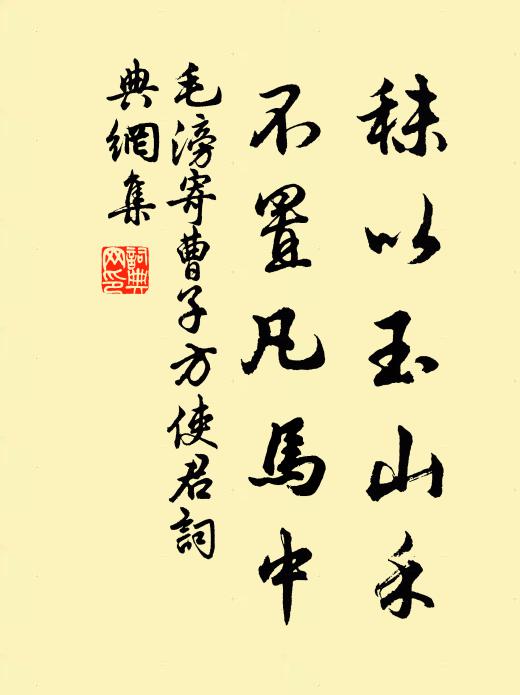 秣以玉山禾
不置凡馬中
毛滂寄曹子方使君詞
典網集
詞典
网印